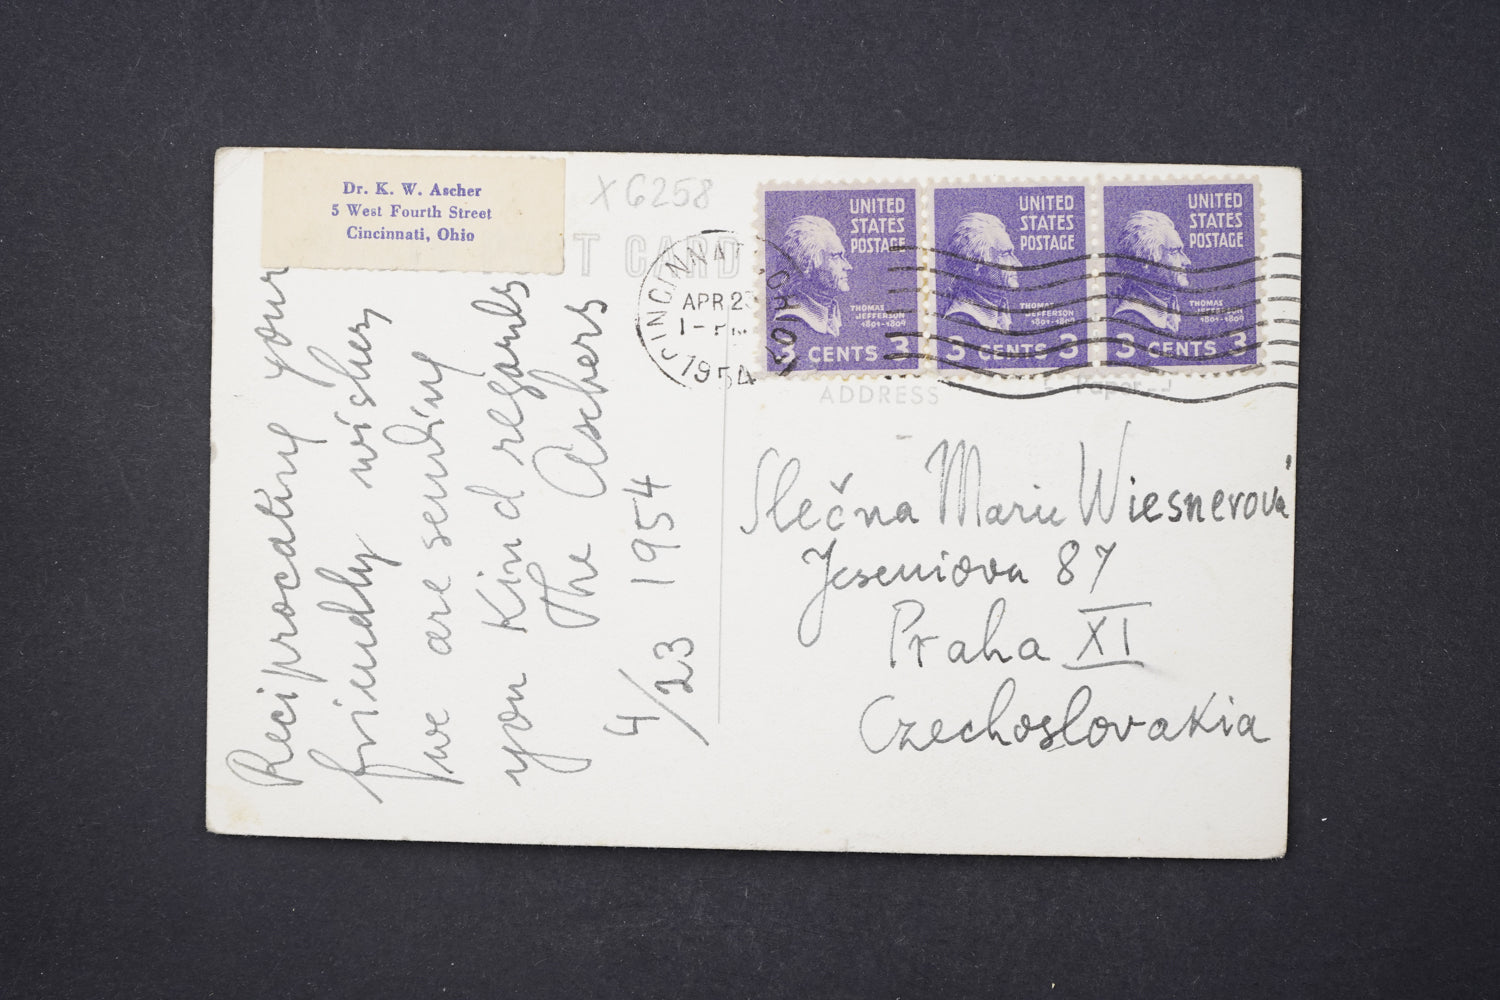 Dr. K. W. Ascher
5 West Fourth Street
Cincinnati, Ohio
X 6258
T CARD
Reciprocating your
friendly wishes
we are sending
you kind regards
The Aschers
4/23 1954
CINCINNATI, OHIO
APR 23
1 - PM
1954
UNITED
STATES
POSTAGE
THOMAS
JEFFERSON
1801-1809
3 CENTS 3
UNITED
STATES
POSTAGE
THOMAS
JEFFERSON
1801-1809
3 CENTS 3
UNITED
STATES
POSTAGE
THOMAS
JEFFERSON
1801-1809
3 CENTS 3
ADDRESS
Paper
Slečna Marie Wiesnerová
Jeseniova 87
Praha XI
Czechoslovakia